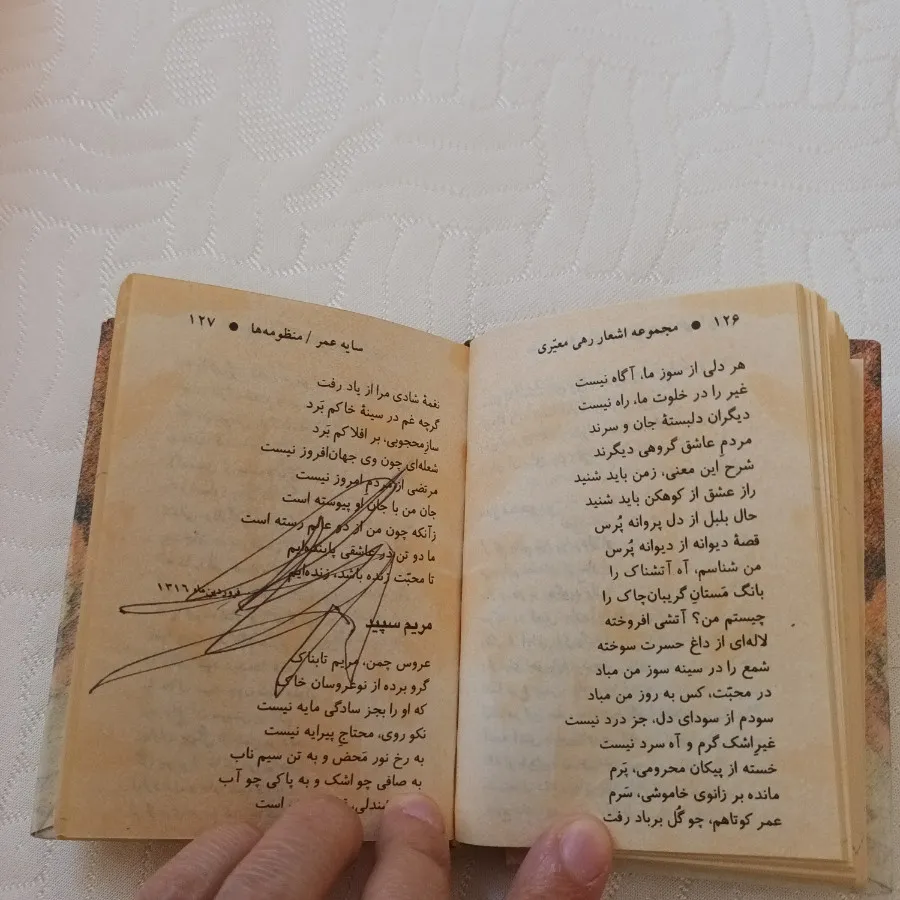 ۱۲۶ ● مجموعه اشعار رهی معیّری
هر دلی از سوز ما، آگاه نیست
غیر را در خلوت ما، راه نیست
دیگران دلبستهٔ جان و سرند
مردمِ عاشق گروهی دیگرند
شرح این معنی، زمن باید شنید
راز عشق از کوهکن باید شنید
حال بلبل از دل پروانه پُرس
قصهٔ دیوانه از دیوانه پُرس
من شناسم، آه آتشناک را
بانگ مَستانِ گریبان‌چاک را
چیستم من؟ آتشی افروخته
لاله‌ای از داغ حسرت سوخته
شمع را در سینه سوز من مباد
در محبّت، کس به روز من مباد
سودم از سودای دل، جز درد نیست
غیرِاشک گرم و آه سرد نیست
خسته از پیکان محرومی، پَرم
مانده بر زانوی خاموشی، سَرم
عمر کوتاهم، چو گُل برباد رفت
سایه عمر / منظومه‌ها ● ۱۲۷
نغمهٔ شادی مرا از یاد رفت
گرچه غم در سینهٔ خاکم بَرد
سازِمحجوبی، بر افلاکم بَرد
شعله‌ای چون وی جهان‌افروز نیست
مرتضی از مردم امروز نیست
جان من با جان او پیوسته است
زآنکه چون من از دو عالم رسته است
ما دو تن در عاشقی پاینده‌ایم
تا محبّت زنده باشد، زنده‌ایم
فروردین‌ماه ۱۳۱۶
مریم سپید
عروس چمن، مریم تابناک
گرو برده از نوعروسان خاک
که او را بجز سادگی مایه نیست
نکو روی، محتاجِ پیرایه نیست
به رخ نور مَحض و به تن سیم ناب
به صافی چو اشک و به پاکی چو آب
است